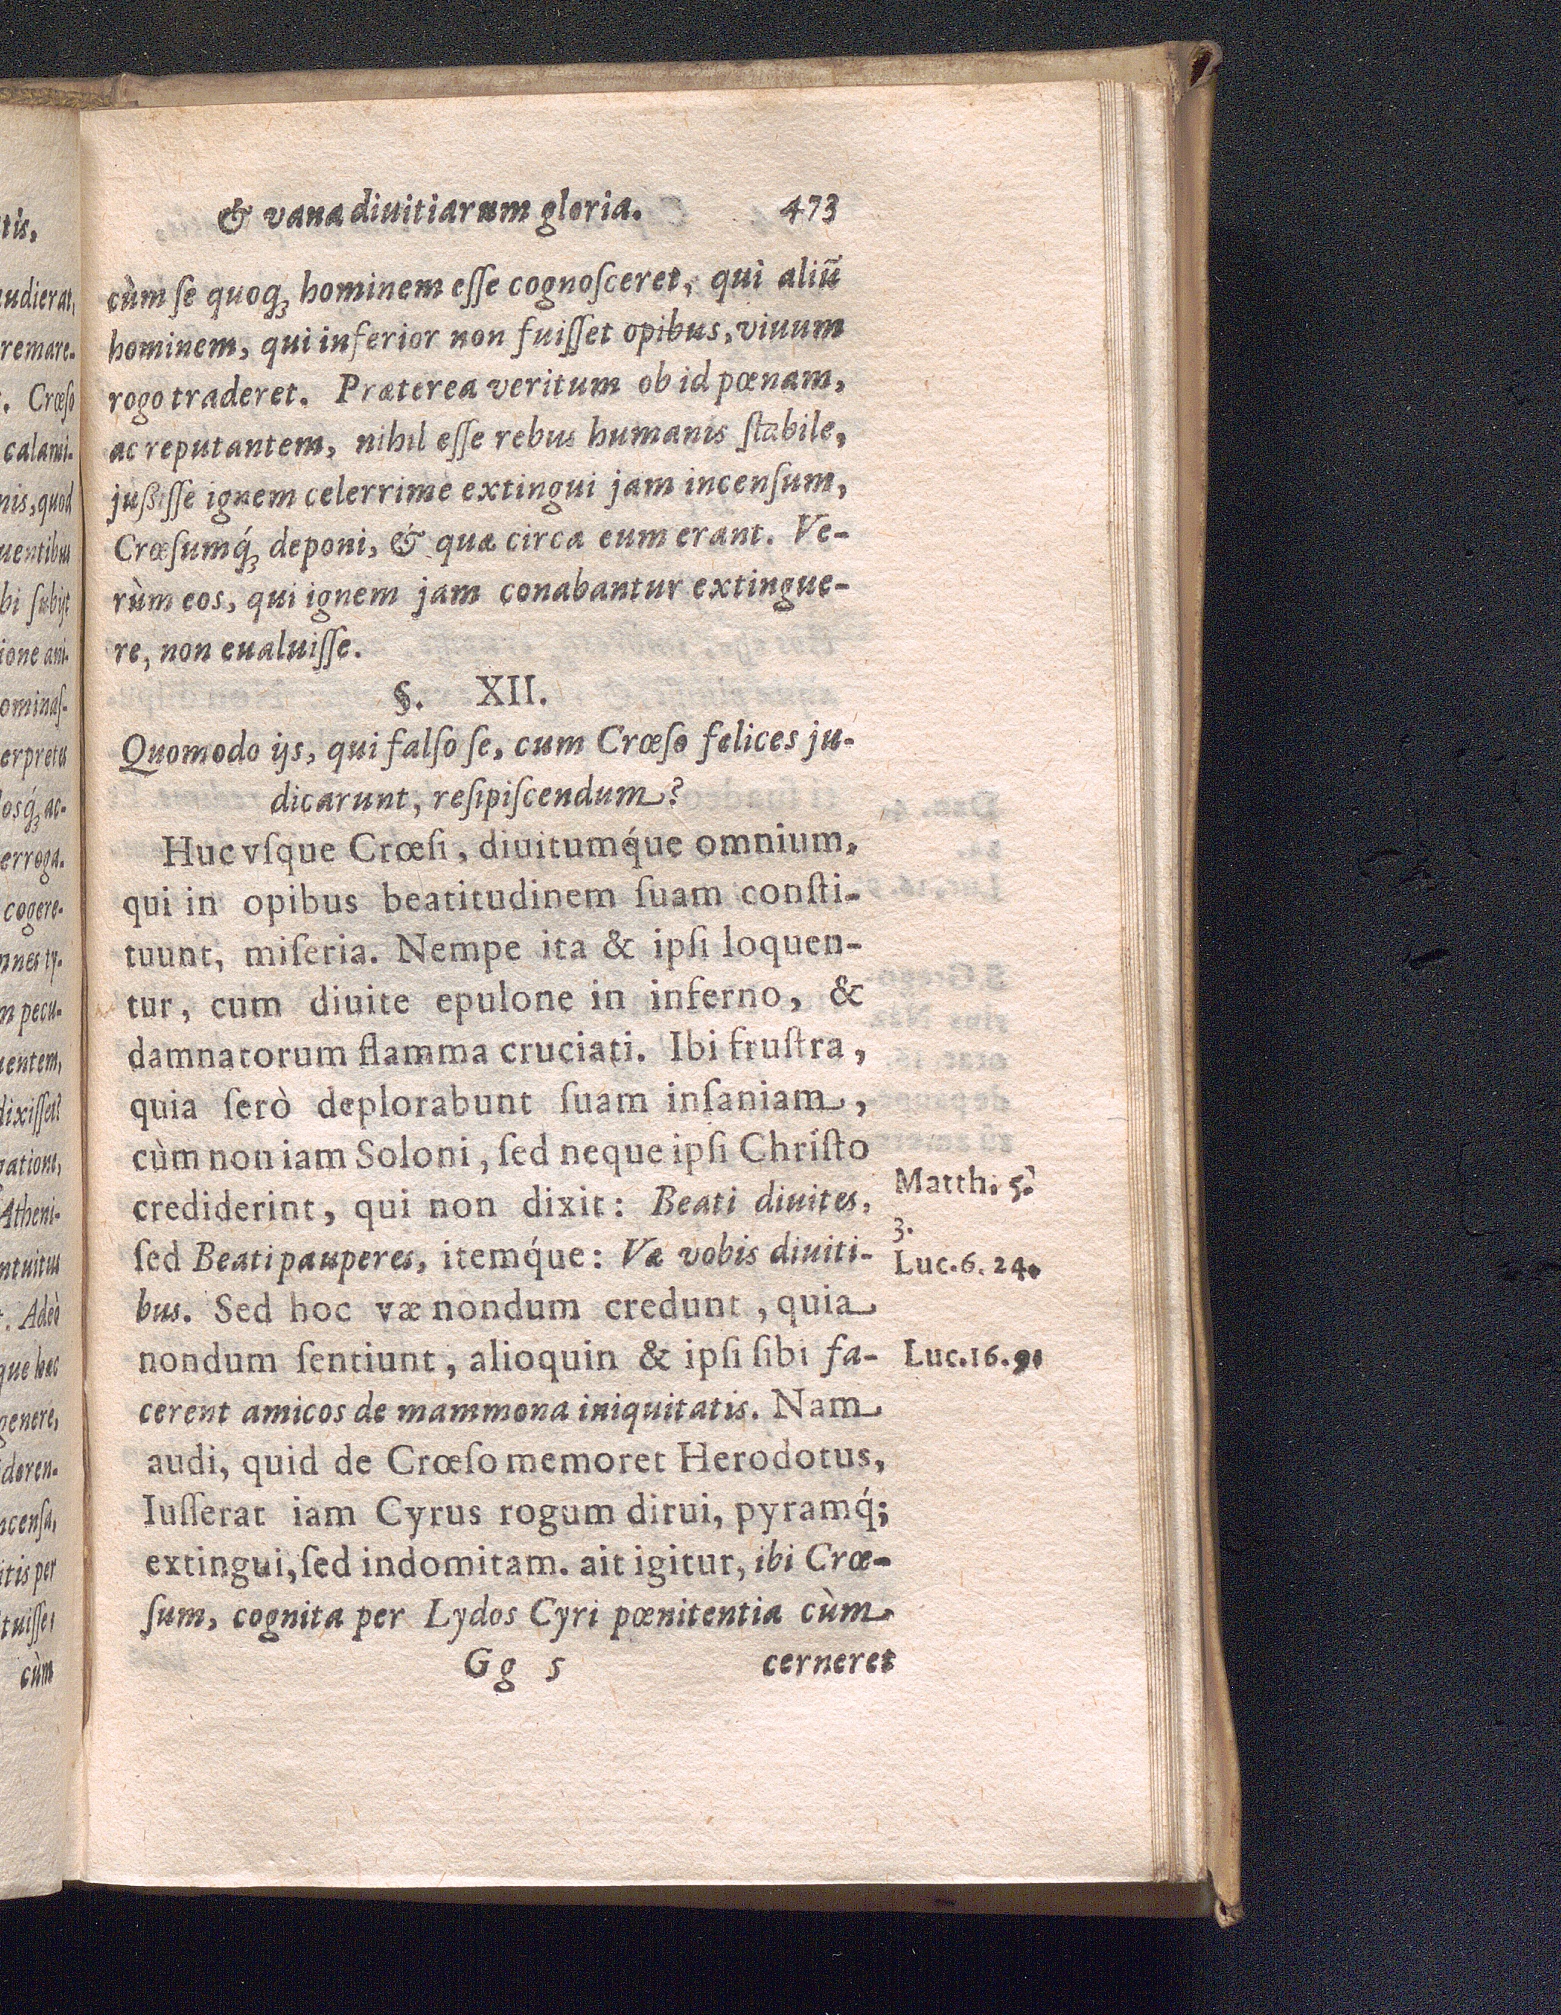 tis,
udierat,
remare-
. Crœſo
calami-
nis, quod
uentibus
bi ſubijt
ione ani-
ominaſ-
erpretu
loſq́ꝫ ac-
erroga-
cogere-
nnes ty-
m pecu-
uentem,
dixiſſet?
gationi,
Atheni-
ntuitus
. Adeò
que hæc
genere,
deren-
ncenſa,
itis per
tuiſſe,
cùm
& vana diuitiarum gloria. 473
cùm ſe quoqꝫ hominem eſſe cognoſceret, qui aliũ
hominem, qui inferior non fuiſſet opibus, viuum
rogo traderet. Præterea veritum ob id pœnam,
ac reputantem, nihil eſſe rebus humanis ſtabile,
jußiſſe ignem celerrimè extingui jam incenſum,
Crœſumq́ꝫ deponi, & quæ circa eum erant. Ve-
rùm eos, qui ignem jam conabantur extingue-
re, non eualuiſſe.
§. XII.
Quomodo ijs, qui falſo ſe, cum Crœſo felices ju-
dicarunt, reſipiſcendum?
Huc vſque Crœſi, diuitumq́ue omnium,
qui in opibus beatitudinem ſuam conſti-
tuunt, miſeria. Nempe ita & ipſi loquen-
tur, cum diuite epulone in inferno, &
damnatorum flamma cruciati. Ibi fruſtra,
quia ſerò deplorabunt ſuam inſaniam,
cùm non iam Soloni, ſed neque ipſi Chriſto
crediderint, qui non dixit: Beati diuites,
ſed Beati pauperes, itemq́ue: Væ vobis diuiti-
bus. Sed hoc væ nondum credunt, quia
nondum ſentiunt, alioquin & ipſi ſibi fa-
cerent amicos de mammona iniquitatis. Nam
audi, quid de Crœſo memoret Herodotus,
Iuſſerat iam Cyrus rogum dirui, pyramq́;
extingui, ſed indomitam. ait igitur, ibi Crœ-
ſum, cognita per Lydos Cyri pœnitentia cùm
Gg 5 cerneret
Matth. 5.
3.
Luc. 6. 24.
Luc. 16. 9.